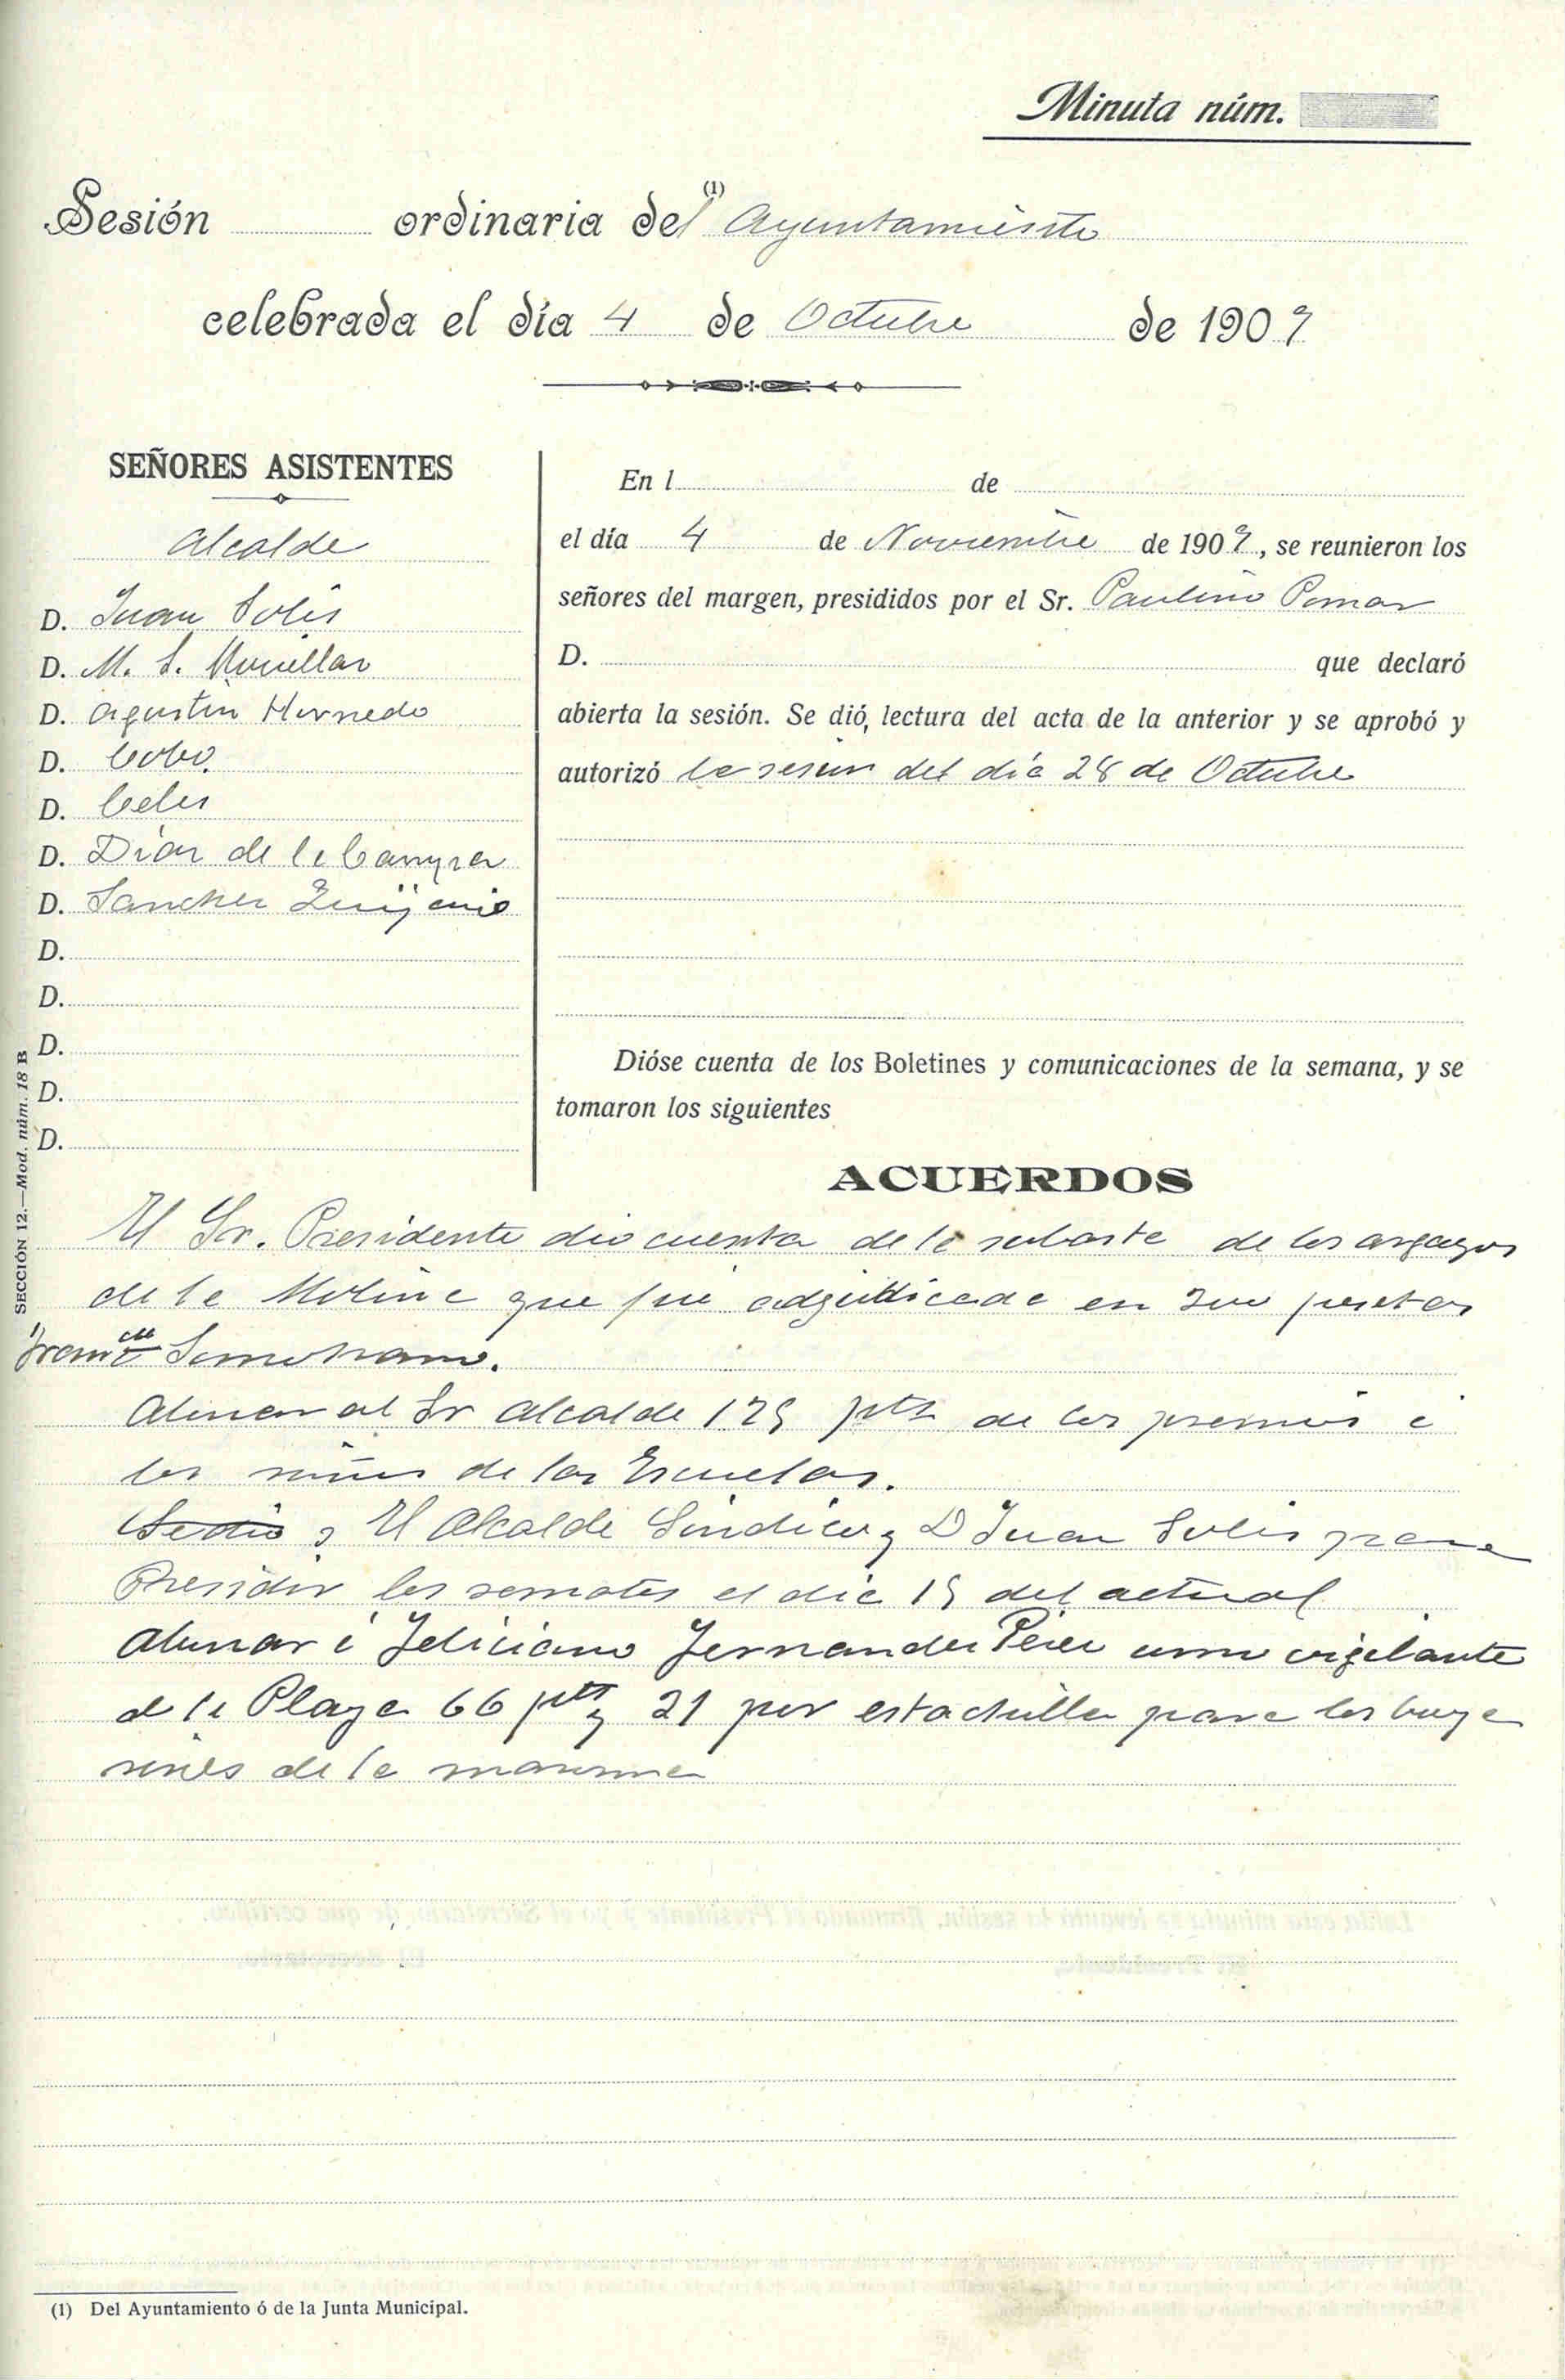 Minuta núm.
Sesión ordinaria del (1) Ayuntamiento
celebrada el día 4 de Octubre de 1909
SEÑORES ASISTENTES
Alcalde
D. Juan Solis
D. M. S. Munellar
D. Agustin Hornedo
D. Cobo.
D. Celis
D. Díaz de la Campa
D. Sanchez Quijano
D.
D.
D.
D.
D.
En l de
el día 4 de Noviembre de 1909, se reunieron los
señores del margen, presididos por el Sr. Paulino Pomar
D. que declaró
abierta la sesión. Se dió, lectura del acta de la anterior y se aprobó y
autorizó la sesion del día 28 de Octubre
Dióse cuenta de los Boletines y comunicaciones de la semana, y se
tomaron los siguientes
ACUERDOS
El Sr. Presidente dio cuenta de la subasta de los argayos
de la Molina que fué adjudicada en pesetas
Franco
Abonar al Sr Alcalde 175 pts de los premios á
los niños de las Escuelas.
El Alcalde Sindico y D Juan Solis para
Presidir los remates el dia 15 del actual
Abonar á Feliciano Fernandez Perez como vigilante
de la Playa 66 pts y 21 por estachilla para los
de la
SECCIÓN 12.—Mod. núm. 18 B
(1) Del Ayuntamiento ó de la Junta Municipal.